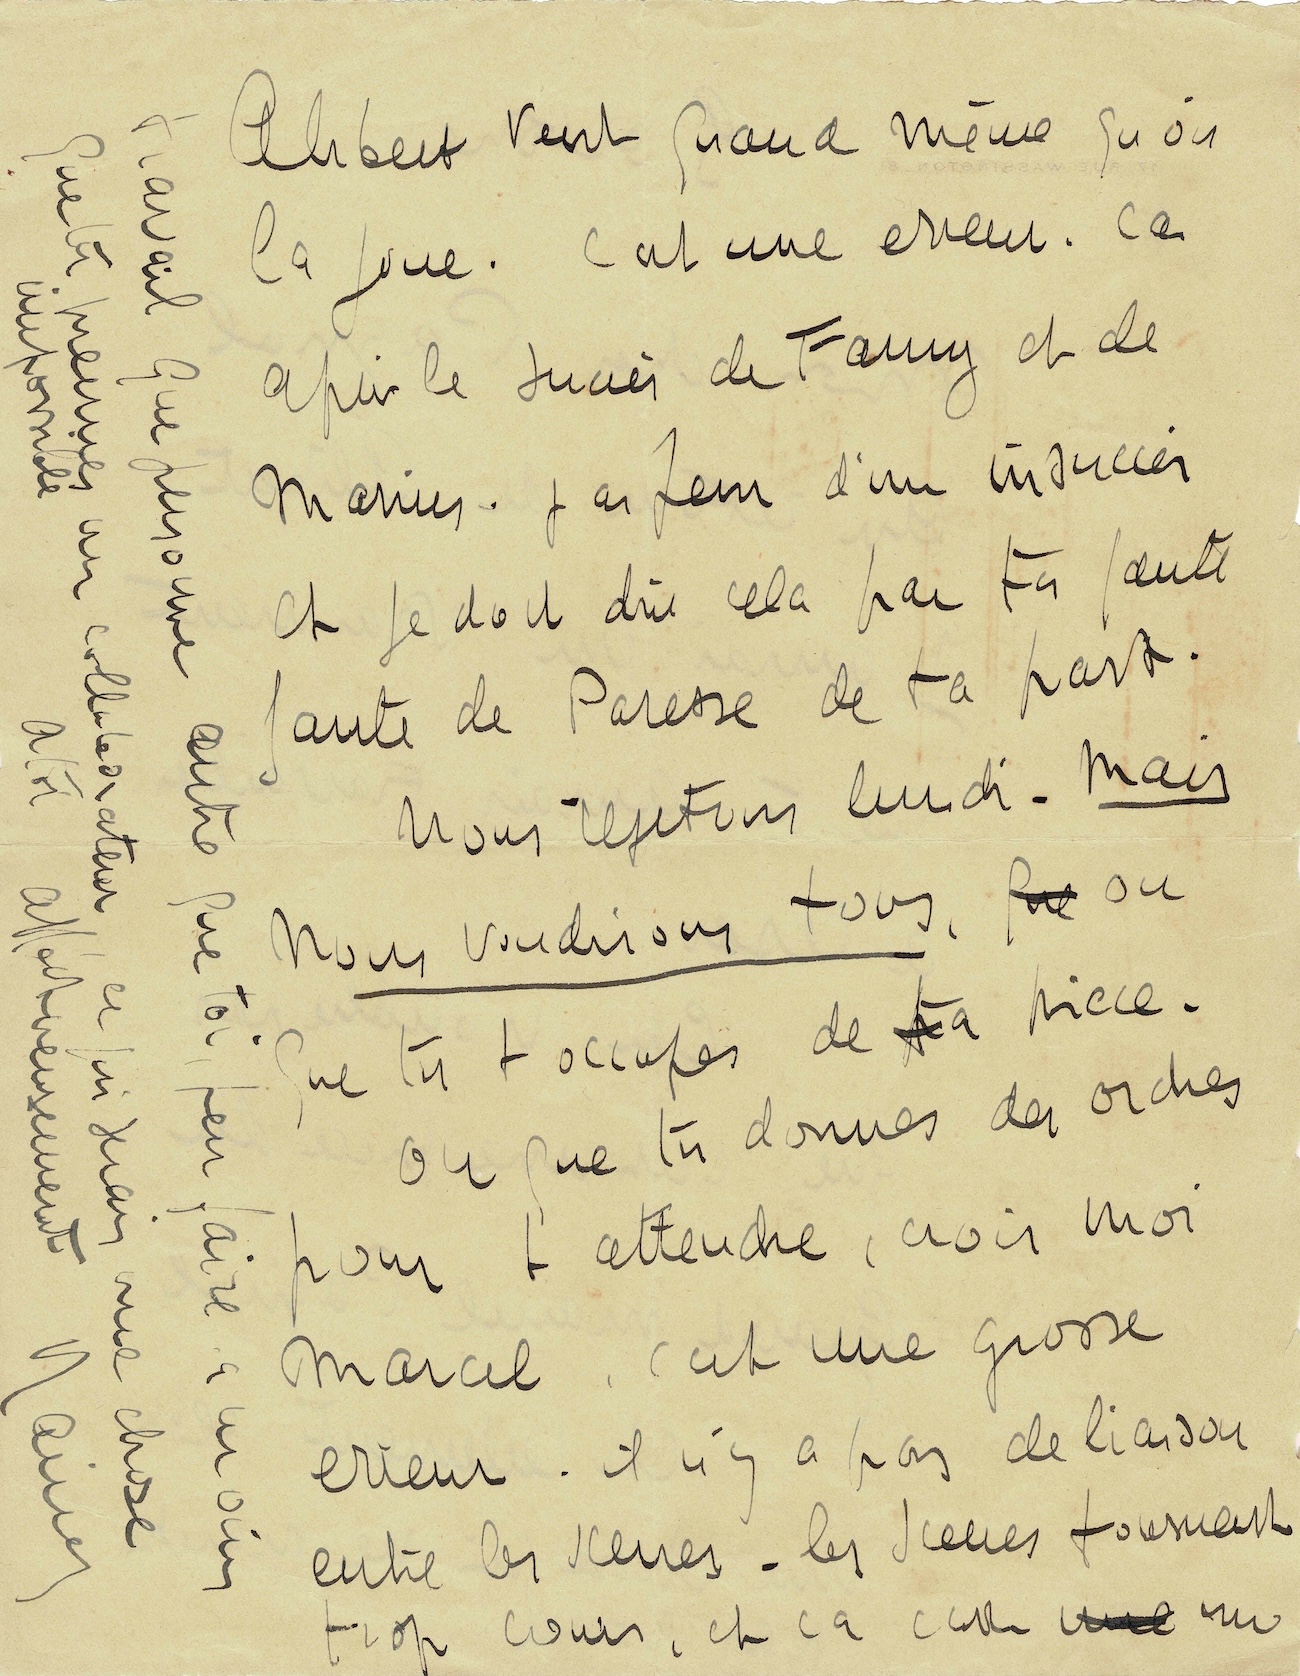 Alibert veut quand même qu'on
la joue. C'est une erreur. Ca
après le succès de Fanny et de
Marius. J'ai peur d'un insuccès
et je dois dire cela par ta faute
faute de Paresse de ta part.
Nous répétons lundi - Mais
Nous voudrions tous, que ou
que tu t occupes de ta pièce -
ou que tu donnes des ordres
pour t attendre, crois moi
Marcel, c'est une grosse
erreur. il n'y a pas de liaison
entre les scenes - les scenes tournent
trop cours, et ca c'est une un
travail que personne autre que toi, peu faire a moin
que tu prennes un collaborateur ce qui serais une chose
impossible a toi affectueusement Raimu